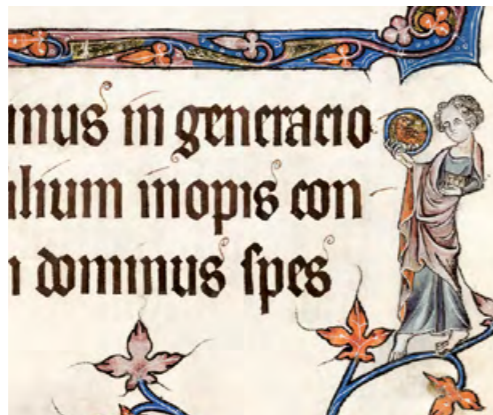 inus in generacio
ilium inopis con
dominus spes